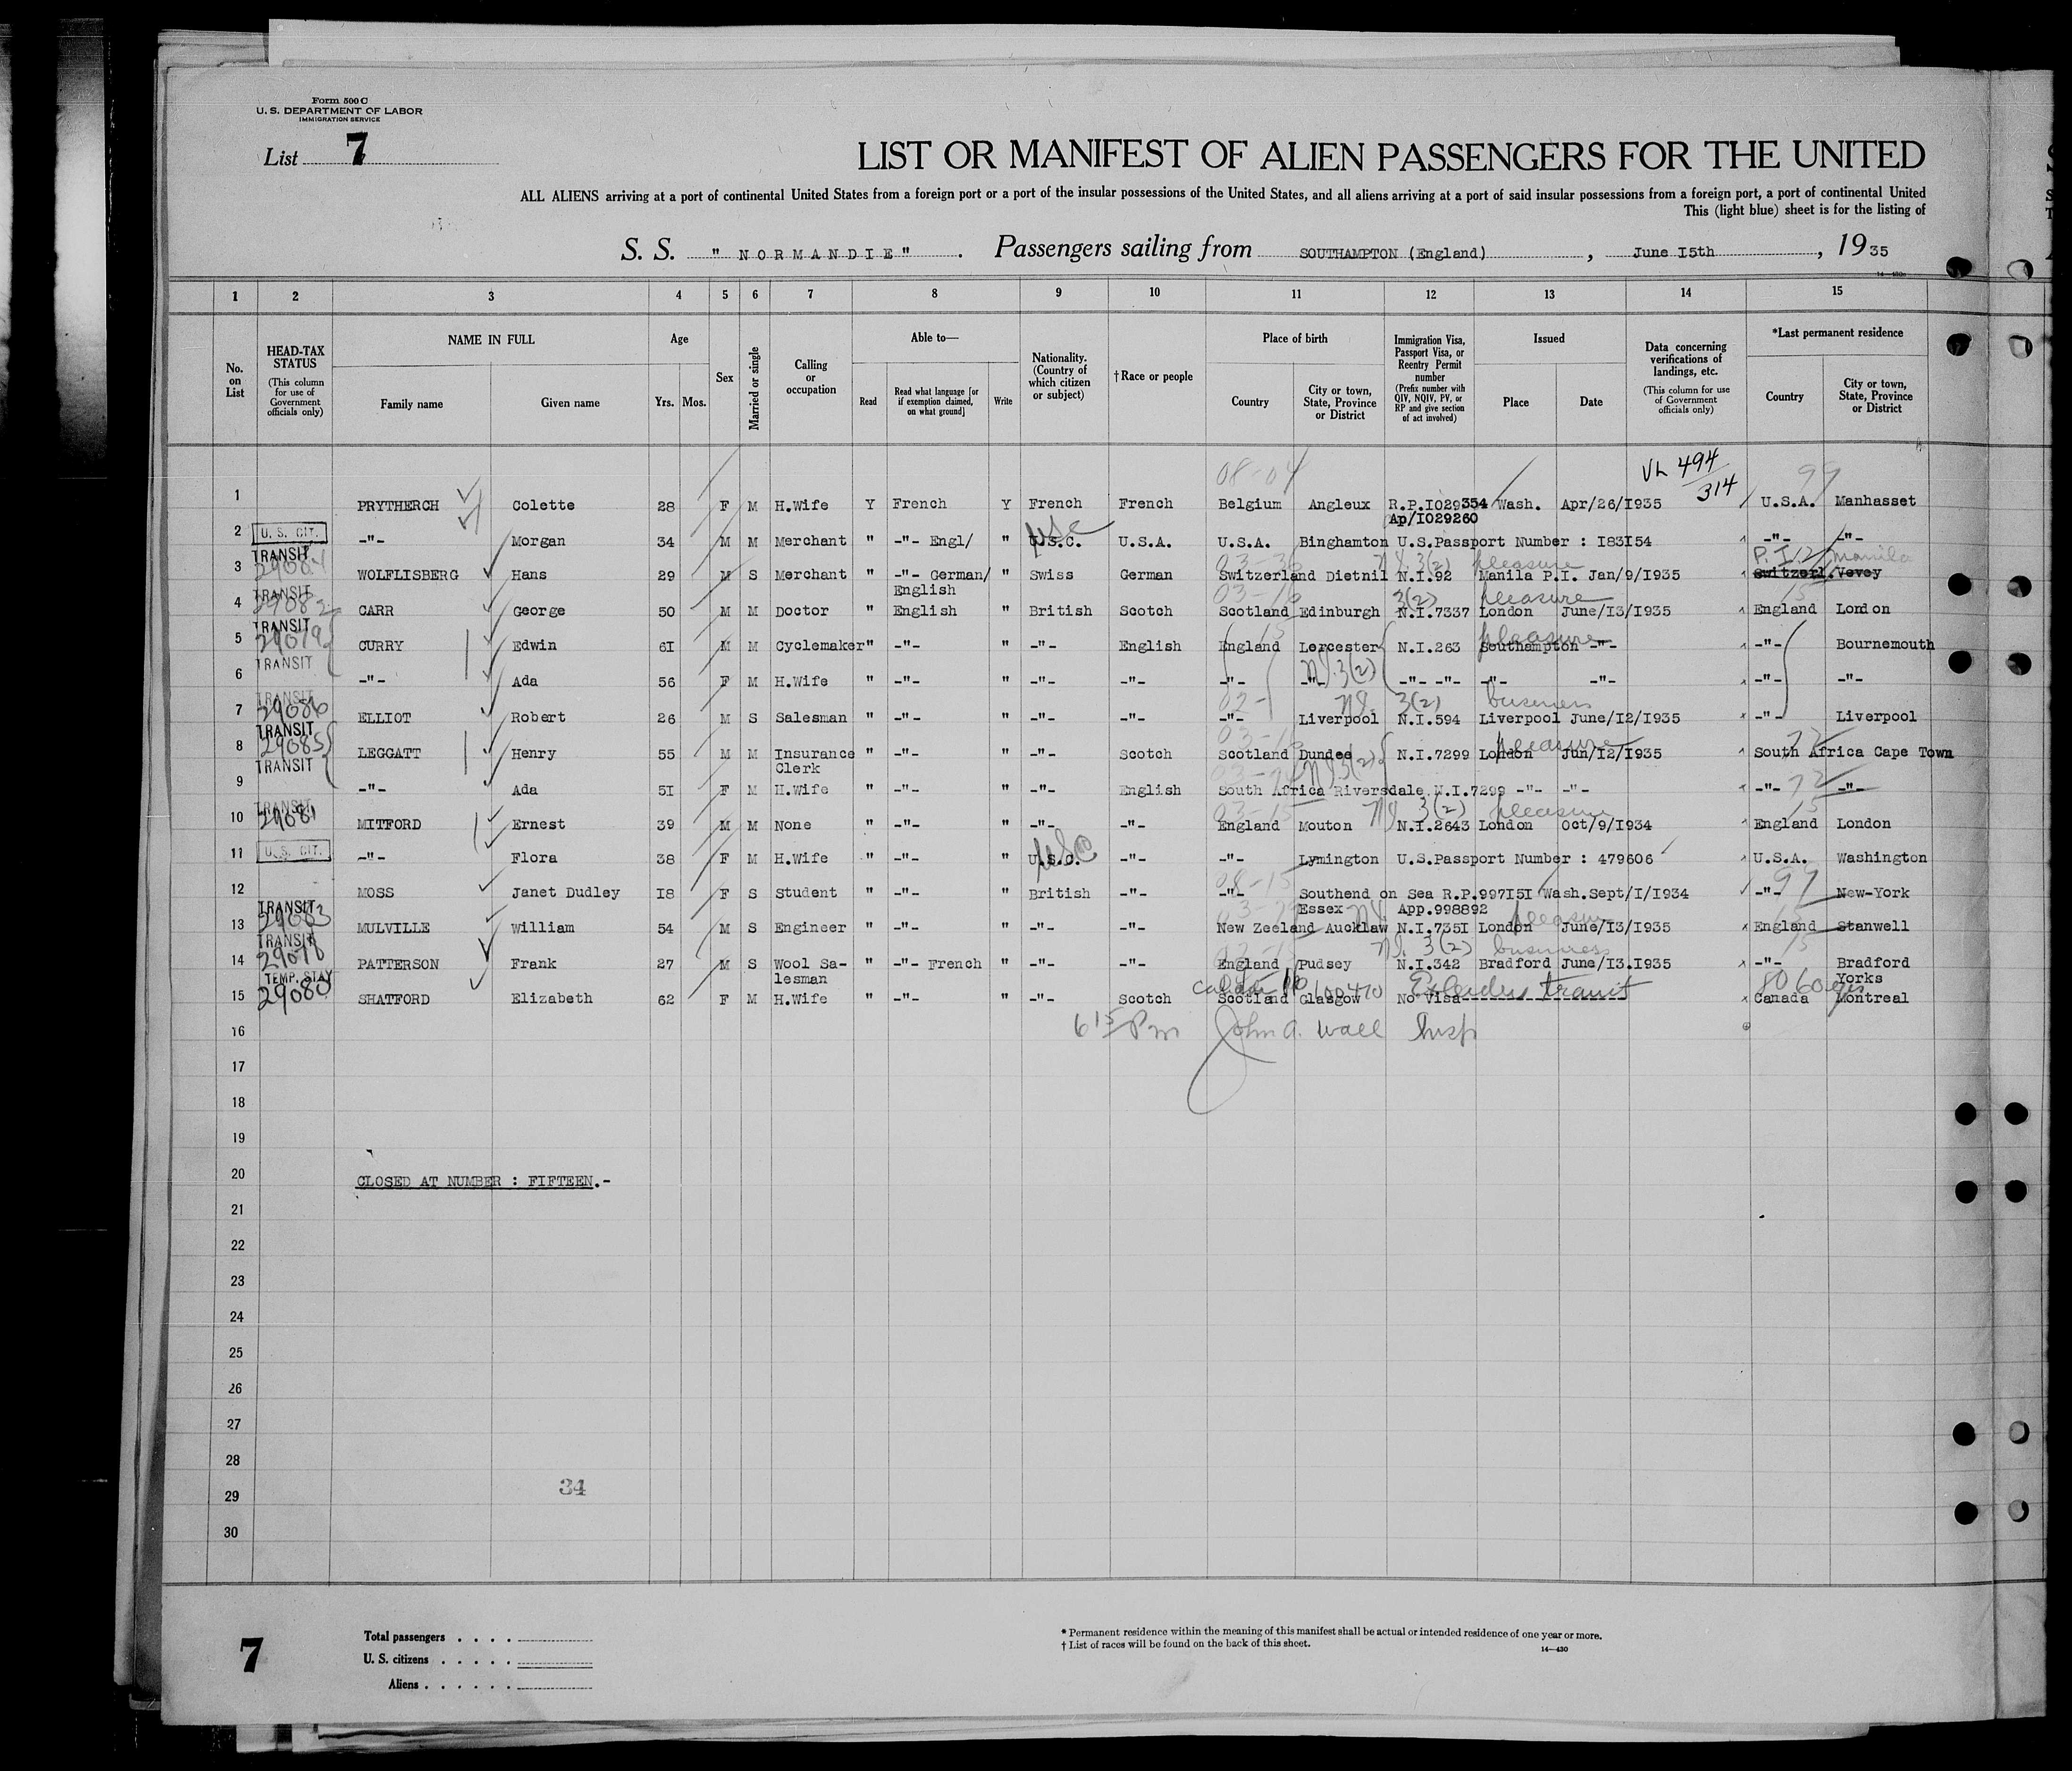 Form 500 C
U. S. DEPARTMENT OF LABOR
IMMIGRATION SERVICE
List 7
LIST OR MANIFEST OF ALIEN PASSENGERS FOR THE UNITED
ALL ALIENS arriving at a port of continental United States from a foreign port or a port of the insular possessions of the United States, and all aliens arriving at a port of said insular possessions from a foreign port, a port of continental United
This (light blue) sheet is for the listing of
S. S. "NORMANDIE". Passengers sailing from SOUTHAMPTON (England), June I5th, 1935
1 2 3 4 5 6 7 8 9 10 11 12 13 14 15
No. on List
HEAD-TAX STATUS (This column for use of Government officials only)
NAME IN FULL Family name Given name
Age Yrs. Mos.
Sex
Married or single
Calling or occupation
Able to— Read Read what language [or if exemption claimed, on what ground] Write
Nationality. (Country of which citizen or subject)
†Race or people
Place of birth Country City or town, State, Province or District
Immigration Visa, Passport Visa, or Reentry Permit number (Prefix number with QIV, NQIV, PV, or RP and give section of act involved)
Issued Place Date
Data concerning verifications of landings, etc. (This column for use of Government officials only)
*Last permanent residence Country City or town, State, Province or District
08-04 VL 494/314 99
1 PRYTHERCH Colette 28 F M H.Wife Y French Y French French Belgium Angleux R.P.I029354 Wash. Apr/26/I935 U.S.A. Manhasset
Ap/I029260
2 U. S. CIT. -"- Morgan 34 M M Merchant " -"- Engl/ " U.S.C. USC U.S.A. U.S.A. Binghamton U.S.Passport Number : I83I54 -"- -"-
TRANSIT 03-36 3(2) pleasure P.I. Manila
3 WOLFLISBERG Hans 29 M S Merchant " -"- German/ " Swiss German Switzerland Dietnil N.I.92 Manila P.I. Jan/9/I935 Switzerl. Vevey
English
TRANSIT 29082 03-16 3(2) pleasure 15
4 CARR George 50 M M Doctor " English " British Scotch Scotland Edinburgh N.I.7337 London June/I3/I935 England London
TRANSIT 29079 15 pleasure
5 CURRY Edwin 6I M M Cyclemaker " -"- " -"- English England Lercester N.I.263 Southampton -"- -"- Bournemouth
TRANSIT 3(2)
6 -"- Ada 56 F M H.Wife " -"- " -"- -"- -"- -"- -"- -"- -"- -"- -"- -"-
TRANSIT 29086 02- 3(2) business
7 ELLIOT Robert 26 M S Salesman " -"- " -"- -"- -"- Liverpool N.I.594 Liverpool June/I2/I935 -"- Liverpool
TRANSIT 29085 pleasure 72
8 LEGGATT Henry 55 M M Insurance " -"- " -"- Scotch Scotland Dundee N.I.7299 London Jun/I2/I935 South Africa Cape Town
Clerk
TRANSIT 3(2)
9 -"- Ada 5I F M H.Wife " -"- " -"- English South Africa Riversdale N.I.7299 -"- -"- -"- 72 -"-
TRANSIT 29081 03-15 3(2) pleasure 15
10 MITFORD Ernest 39 M M None " -"- " -"- -"- England Mouton N.I.2643 London Oct/9/I934 England London
11 U.S. CIT. -"- Flora 38 F M H.Wife " -"- " U.S.C. USC -"- -"- Lymington U.S.Passport Number : 479606 U.S.A. Washington
08-15 99
12 MOSS Janet Dudley I8 F S Student " -"- " British -"- -"- Southend on Sea R.P.997I5I Wash.Sept/I/I934 -"- New-York
Essex App.998892
TRANSIT 29083 pleasure
13 MULVILLE William 54 M S Engineer " -"- " -"- -"- New Zeeland Aucklaw N.I.735I London June/I3/I935 England Stanwell
TRANSIT 29078 3(2) business 15
14 PATTERSON Frank 27 M S Wool Sa- " -"- French " -"- -"- England Pudsey N.I.342 Bradford June/I3.I935 -"- Bradford
lesman Yorks
TEMP. STAY 29080
15 SHATFORD Elizabeth 62 F M H.Wife " -"- " -"- Scotch Scotland Glasgow No Visa transit Canada Montreal
16 6 15 Pm John A. Wall Insp
17
18
19
20 CLOSED AT NUMBER : FIFTEEN.-
21
22
23
24
25
26
27
28
29 34
30
7
Total passengers
U. S. citizens
Aliens
* Permanent residence within the meaning of this manifest shall be actual or intended residence of one year or more.
† List of races will be found on the back of this sheet.
14—430